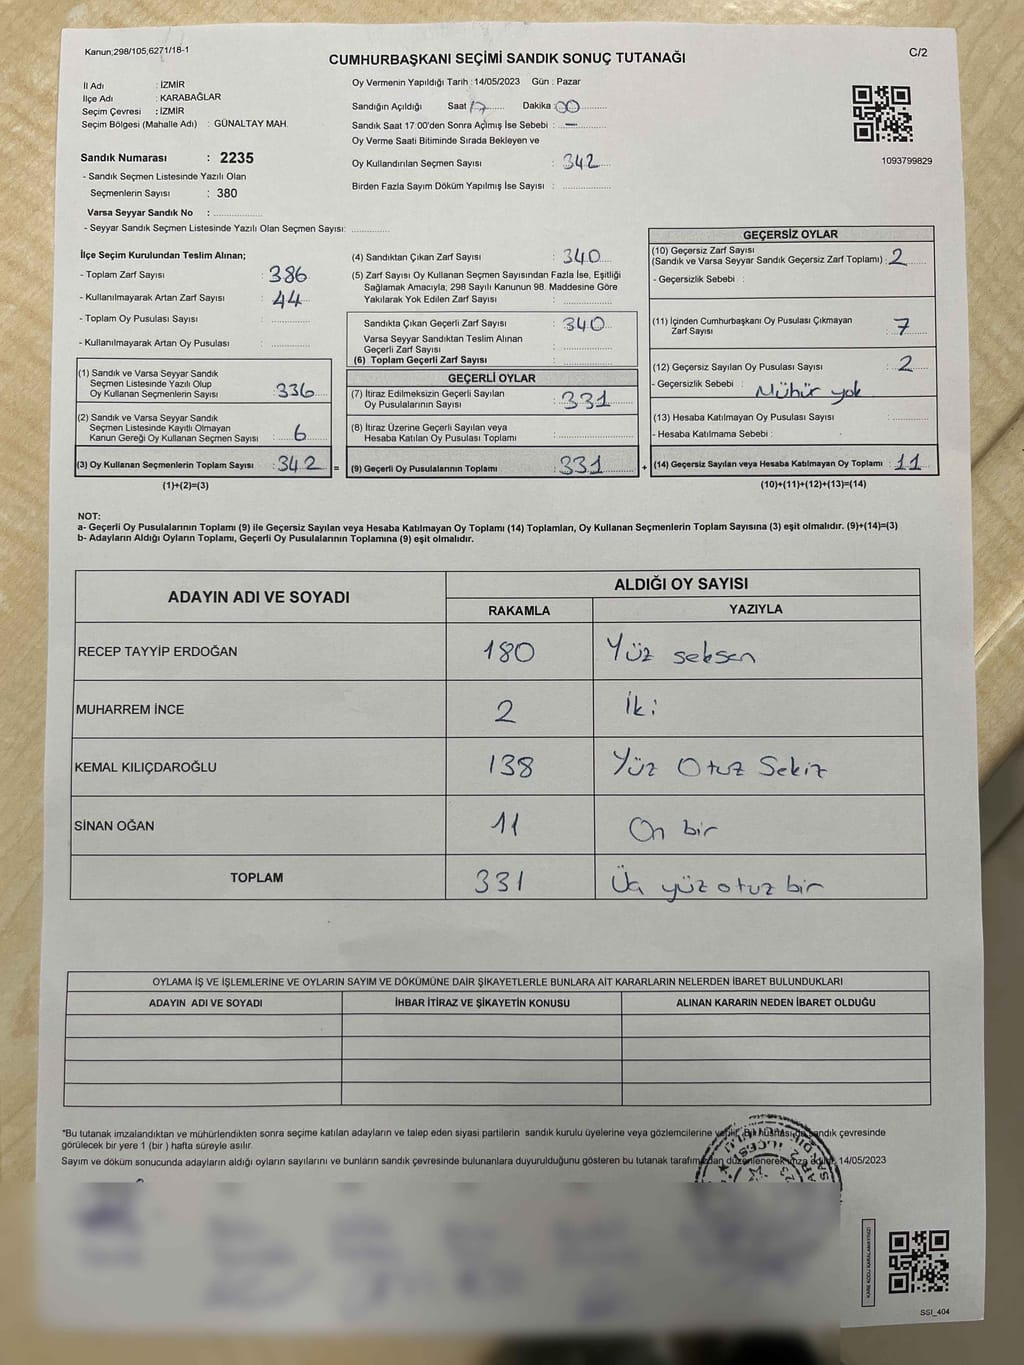 Kanun;298/105,6271/18-1
CUMHURBAŞKANI SEÇİMİ SANDIK SONUÇ TUTANAĞI
C/2
İl Adı : İZMİR
İlçe Adı : KARABAĞLAR
Seçim Çevresi : İZMİR
Seçim Bölgesi (Mahalle Adı) : GÜNALTAY MAH.
Sandık Numarası : 2235
- Sandık Seçmen Listesinde Yazılı Olan
Seçmenlerin Sayısı : 380
Varsa Seyyar Sandık No :
- Seyyar Sandık Seçmen Listesinde Yazılı Olan Seçmen Sayısı:
Oy Vermenin Yapıldığı Tarih : 14/05/2023 Gün : Pazar
Sandığın Açıldığı Saat 17 Dakika 00
Sandık Saat 17:00'den Sonra Açılmış İse Sebebi : —
Oy Verme Saati Bitiminde Sırada Bekleyen ve
Oy Kullandırılan Seçmen Sayısı : 342
Birden Fazla Sayım Döküm Yapılmış İse Sayısı :
1093799829
İlçe Seçim Kurulundan Teslim Alınan;
- Toplam Zarf Sayısı : 386
- Kullanılmayarak Artan Zarf Sayısı : 44
- Toplam Oy Pusulası Sayısı :
- Kullanılmayarak Artan Oy Pusulası :
(1) Sandık ve Varsa Seyyar Sandık
Seçmen Listesinde Yazılı Olup
Oy Kullanan Seçmenlerin Sayısı : 336
(2) Sandık ve Varsa Seyyar Sandık
Seçmen Listesinde Kayıtlı Olmayan
Kanun Gereği Oy Kullanan Seçmen Sayısı : 6
(3) Oy Kullanan Seçmenlerin Toplam Sayısı : 342 =
(1)+(2)=(3)
(4) Sandıktan Çıkan Zarf Sayısı : 340
(5) Zarf Sayısı Oy Kullanan Seçmen Sayısından Fazla İse, Eşitliği
Sağlamak Amacıyla; 298 Sayılı Kanunun 98. Maddesine Göre
Yakılarak Yok Edilen Zarf Sayısı :
Sandıkta Çıkan Geçerli Zarf Sayısı : 340
Varsa Seyyar Sandıktan Teslim Alınan
Geçerli Zarf Sayısı :
(6) Toplam Geçerli Zarf Sayısı :
GEÇERLİ OYLAR
(7) İtiraz Edilmeksizin Geçerli Sayılan
Oy Pusulalarının Sayısı : 331
(8) İtiraz Üzerine Geçerli Sayılan veya
Hesaba Katılan Oy Pusulası Toplamı :
(9) Geçerli Oy Pusulalarının Toplamı : 331 +
GEÇERSİZ OYLAR
(10) Geçersiz Zarf Sayısı
(Sandık ve Varsa Seyyar Sandık Geçersiz Zarf Toplamı) : 2
- Geçersizlik Sebebi :
(11) İçinden Cumhurbaşkanı Oy Pusulası Çıkmayan
Zarf Sayısı : 7
(12) Geçersiz Sayılan Oy Pusulası Sayısı : 2
- Geçersizlik Sebebi : Mühür yok
(13) Hesaba Katılmayan Oy Pusulası Sayısı :
- Hesaba Katılmama Sebebi :
(14) Geçersiz Sayılan veya Hesaba Katılmayan Oy Toplamı : 11
(10)+(11)+(12)+(13)=(14)
NOT:
a- Geçerli Oy Pusulalarının Toplamı (9) ile Geçersiz Sayılan veya Hesaba Katılmayan Oy Toplamı (14) Toplamları, Oy Kullanan Seçmenlerin Toplam Sayısına (3) eşit olmalıdır. (9)+(14)=(3)
b- Adayların Aldığı Oyların Toplamı, Geçerli Oy Pusulalarının Toplamına (9) eşit olmalıdır.
ADAYIN ADI VE SOYADI
ALDIĞI OY SAYISI
RAKAMLA YAZIYLA
RECEP TAYYİP ERDOĞAN 180 Yüz seksen
MUHARREM İNCE 2 İki
KEMAL KILIÇDAROĞLU 138 Yüz Otuz Sekiz
SİNAN OĞAN 11 On bir
TOPLAM 331 Üç yüz otuz bir
OYLAMA İŞ VE İŞLEMLERİNE VE OYLARIN SAYIM VE DÖKÜMÜNE DAİR ŞİKAYETLERLE BUNLARA AİT KARARLARIN NELERDEN İBARET BULUNDUKLARI
ADAYIN ADI VE SOYADI İHBAR İTİRAZ VE ŞİKAYETİN KONUSU ALINAN KARARIN NEDEN İBARET OLDUĞU
*Bu tutanak imzalandıktan ve mühürlendikten sonra seçime katılan adayların ve talep eden siyasi partilerin sandık kurulu üyelerine veya gözlemcilerine verilir. Bir nüshası da sandık çevresinde
görülecek bir yere 1 (bir) hafta süreyle asılır.
Sayım ve döküm sonucunda adayların aldığı oyların sayılarını ve bunların sandık çevresinde bulunanlara duyurulduğunu gösteren bu tutanak tarafımızdan düzenlenerek imza edildi. 14/05/2023
KARE KODU KARALAMAYINIZ!
SSI_404